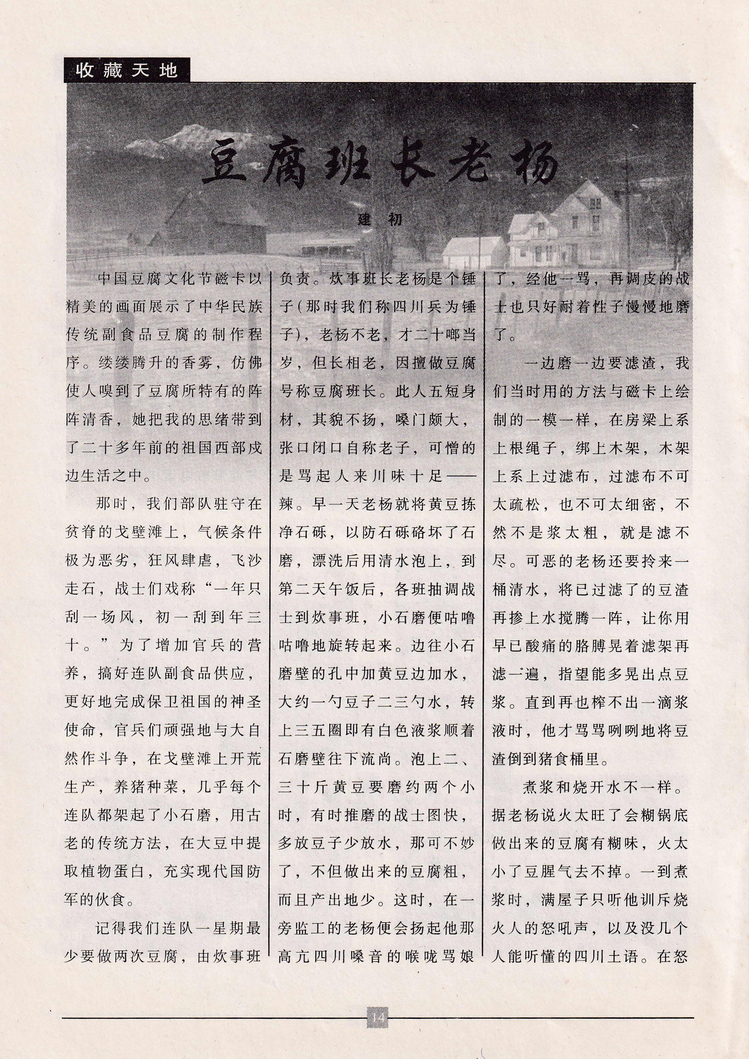 收藏天地
豆腐班长老杨
建初
中国豆腐文化节磁卡以
精美的画面展示了中华民族
传统副食品豆腐的制作程
序。缕缕腾升的香雾，仿佛
使人嗅到了豆腐所特有的阵
阵清香，她把我的思绪带到
了二十多年前的祖国西部戍
边生活之中。
那时，我们部队驻守在
贫脊的戈壁滩上，气候条件
极为恶劣，狂风肆虐，飞沙
走石，战士们戏称“一年只
刮一场风，初一刮到年三
十。”为了增加官兵的营
养，搞好连队副食品供应，
更好地完成保卫祖国的神圣
使命，官兵们顽强地与大自
然作斗争，在戈壁滩上开荒
生产，养猪种菜，几乎每个
连队都架起了小石磨，用古
老的传统方法，在大豆中提
取植物蛋白，充实现代国防
军的伙食。
记得我们连队一星期最
少要做两次豆腐，由炊事班
负责。炊事班长老杨是个锤
子(那时我们称四川兵为锤
子)，老杨不老，才二十啷当
岁，但长相老，因擅做豆腐
号称豆腐班长。此人五短身
材，其貌不扬，嗓门颇大，
张口闭口自称老子，可憎的
是骂起人来川味十足——
辣。早一天老杨就将黄豆拣
净石砾，以防石砾硌坏了石
磨，漂洗后用清水泡上，到
第二天午饭后，各班抽调战
士到炊事班，小石磨便咕噜
咕噜地旋转起来。边往小石
磨壁的孔中加黄豆边加水，
大约一勺豆子二三勺水，转
上三五圈即有白色液浆顺着
石磨壁往下流尚。泡上二、
三十斤黄豆要磨约两个小
时，有时推磨的战士图快，
多放豆子少放水，那可不妙
了，不但做出来的豆腐粗，
而且产出地少。这时，在一
旁监工的老杨便会扬起他那
高亢四川嗓音的喉咙骂娘
了，经他一骂，再调皮的战
士也只好耐着性子慢慢地磨
了。
一边磨一边要滤渣，我
们当时用的方法与磁卡上绘
制的一模一样，在房梁上系
上根绳子，绑上木架，木架
上系上过滤布，过滤布不可
太疏松，也不可太细密，不
然不是浆太粗，就是滤不
尽。可恶的老杨还要拎来一
桶清水，将已过滤了的豆渣
再掺上水搅腾一阵，让你用
早已酸痛的胳膊晃着滤架再
滤一遍，指望能多晃出点豆
浆。直到再也榨不出一滴浆
液时，他才骂骂咧咧地将豆
渣倒到猪食桶里。
煮浆和烧开水不一样。
据老杨说火太旺了会糊锅底
做出来的豆腐有糊味，火太
小了豆腥气去不掉。一到煮
浆时，满屋子只听他训斥烧
火人的怒吼声，以及没几个
人能听懂的四川土语。在怒
14